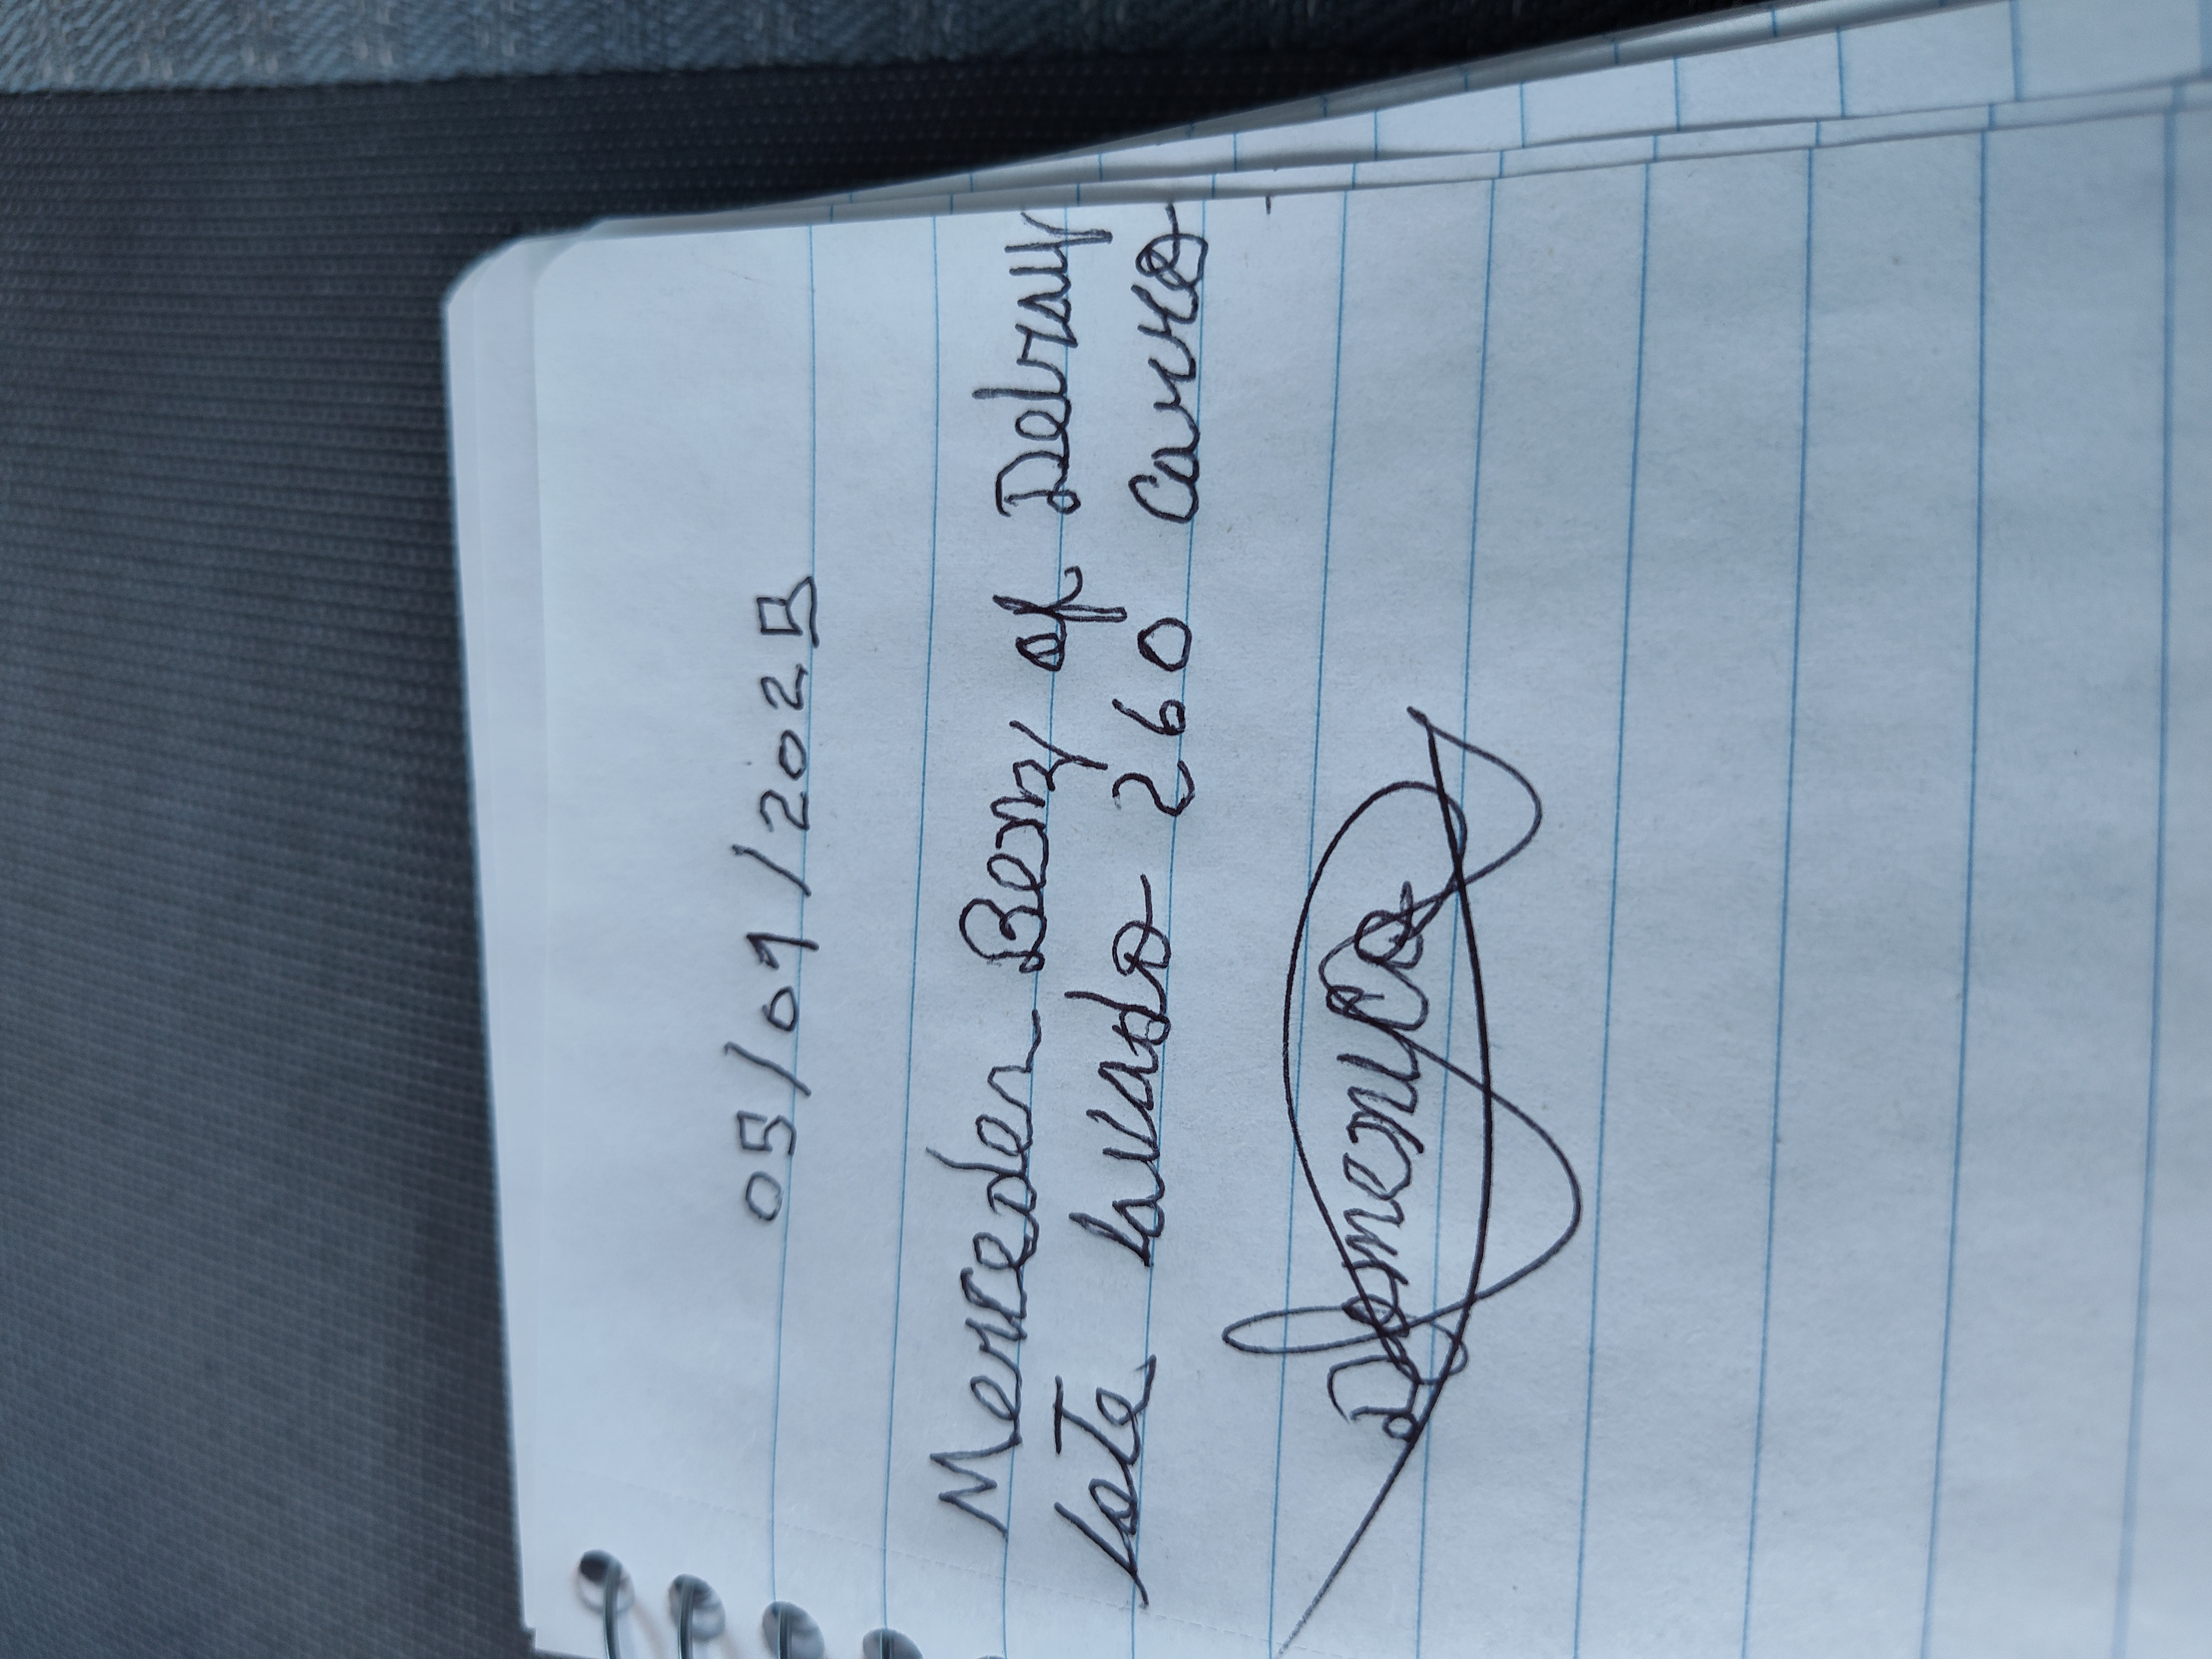 05/09/2025
Mercedes Benz of Delray
Lote lavado 260 Carros
Domenyco